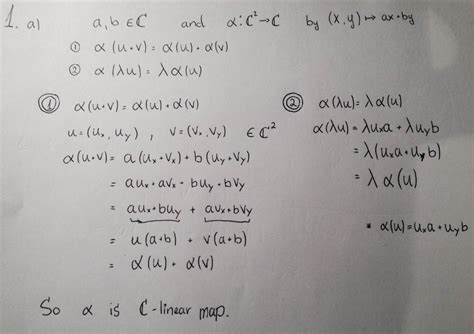 1. a) a, b ∈ ℂ and α: ℂ² → ℂ by (x, y) ↦ ax + by
① α(u+v) = α(u) + α(v)
② α(λu) = λα(u)
① α(u+v) = α(u) + α(v)
u = (uₓ, u_y) , v = (vₓ, v_y) ∈ ℂ²
α(u+v) = a(uₓ+vₓ) + b(u_y+v_y)
= auₓ + avₓ + bu_y + bv_y
= auₓ + bu_y + avₓ + bv_y
= u(a+b) + v(a+b)
= α(u) + α(v)
② α(λu) = λα(u)
α(λu) = λuₓa + λu_yb
= λ(uₓa + u_yb)
= λα(u)
* α(u) = uₓa + u_yb
So α is ℂ-linear map.